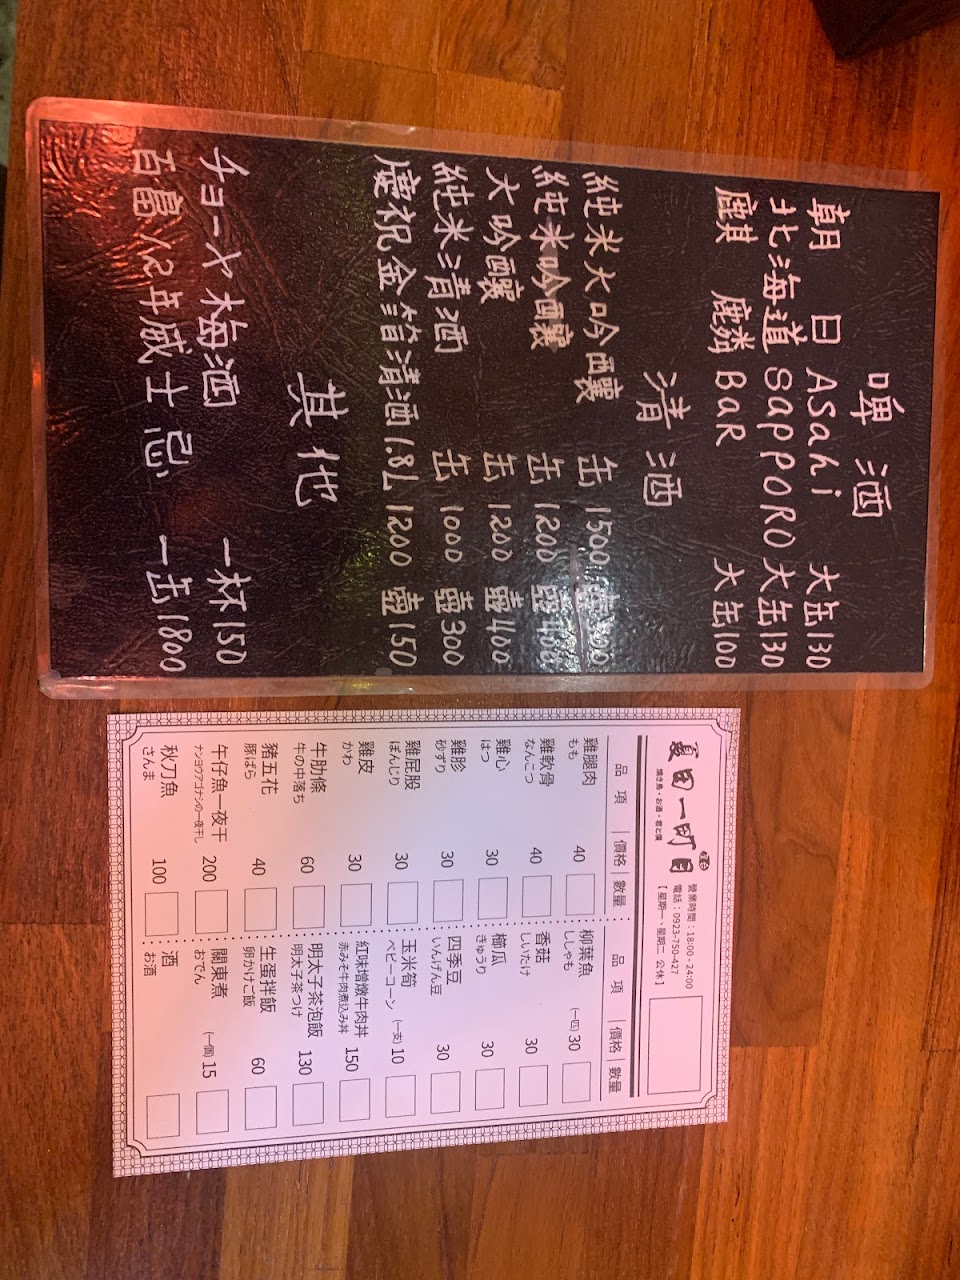 啤酒
朝日 ASahi 大缶130
北海道 SAPPORO 大缶130
麒麟 BaR 大缶100
清酒
純米大吟釀 缶 1500
純米吟釀 缶 1200 壺400
大吟釀 缶 1200 壺400
純米清酒 缶 1000 壺300
慶祝金箔清酒 1.8L 1200 壺150
其他
チョーヤ梅酒 一杯150
百富12年威士忌 一缶1800
夏田一町目
焼き鳥・お酒・君と僕
營業時間：18:00 - 24:00
電話：0923-750-427
【 星期一、星期二 公休】
品項 價格 數量
雞腿肉 40
もも
雞軟骨 40
なんこつ
雞心 30
はつ
雞胗 30
砂ずり
雞屁股 30
ぼんじり
雞皮 30
かわ
牛肋條 60
牛の中落ち
豬五花 40
豚ばら
午仔魚一夜干 200
ナンヨウアゴナシの一夜干し
秋刀魚 100
さんま
品項 價格 數量
柳葉魚 (一四) 30
ししゃも
香菇 30
しいたけ
櫛瓜 30
きゅうり
四季豆 30
いんげん豆
玉米筍 (一支) 10
ベビーコーン
紅味增燉牛肉丼 150
赤みそ牛肉煮込み丼
明太子茶泡飯 130
明太子茶つけ
生蛋拌飯 60
卵かけご飯
關東煮 (一個) 15
おでん
酒
お酒